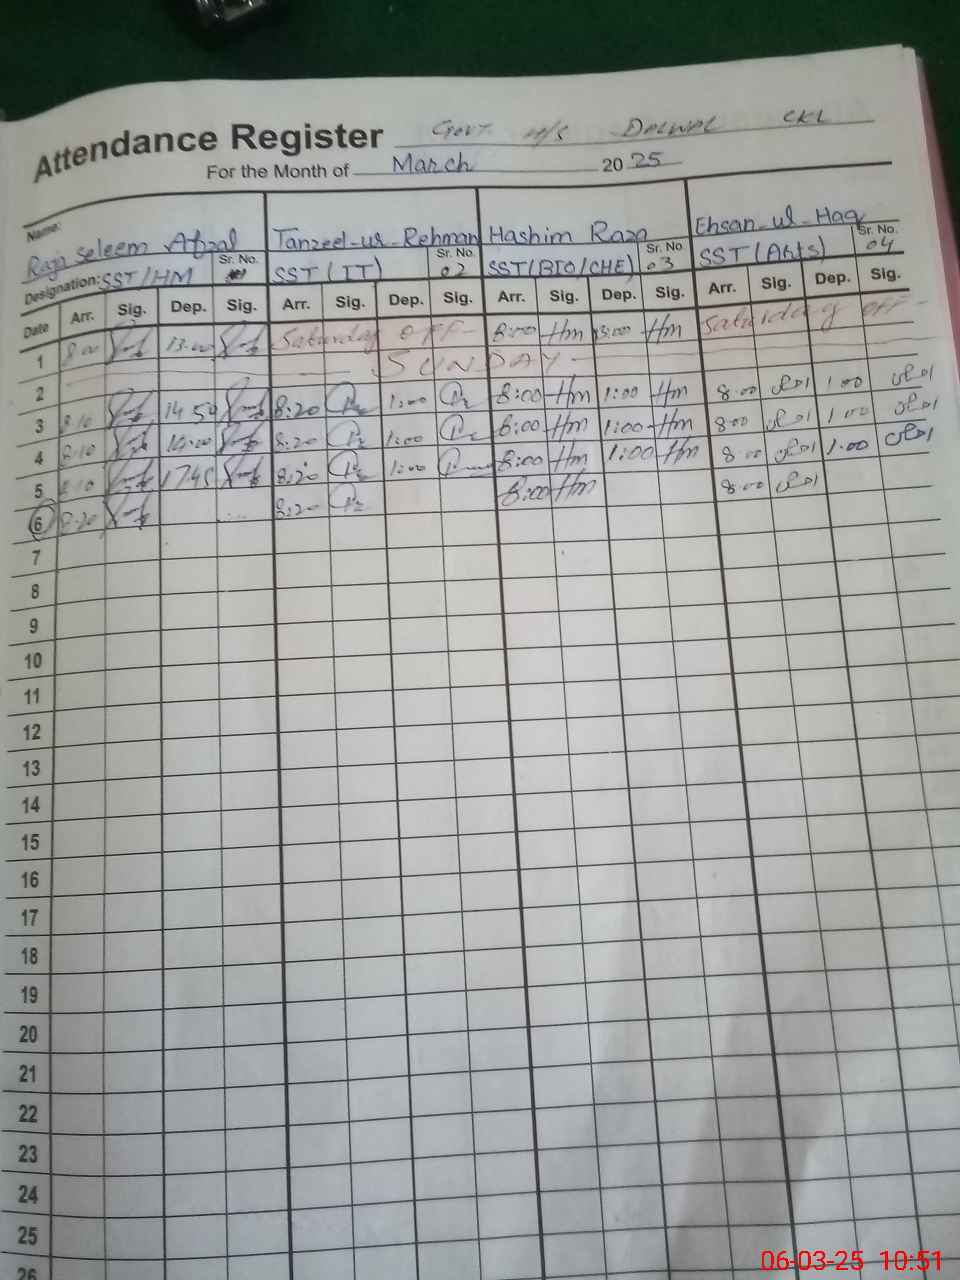 Attendance Register Govt. H/S Dalwal CKL
For the Month of March 2025
Name: Raja Saleem Afzal Tanzeel-ur-Rehman Hashim Raza Ehsan-ul-Haq
Designation: SST/HM Sr. No. SST(IT) Sr. No. 02 SST(BIO/CHE) Sr. No. 03 SST(Arts) Sr. No. 04
Date Arr. Sig. Dep. Sig. Arr. Sig. Dep. Sig. Arr. Sig. Dep. Sig. Arr. Sig. Dep. Sig.
1 8:00 13:00 Saturday OFF 8:00 Hm 13:00 Hm Saturday OFF
2 SUNDAY
3 8:10 14:50 8:20 1:00 8:00 Hm 1:00 Hm 8:00 1:00
4 8:10 14:00 8:20 1:00 8:00 Hm 1:00 Hm 8:00 1:00
5 8:10 17:45 8:20 1:00 8:00 Hm 1:00 Hm 8:00 1:00
6 8:20 8:20 8:00 Hm 8:00
7
8
9
10
11
12
13
14
15
16
17
18
19
20
21
22
23
24
25
26
06-03-25 10:51